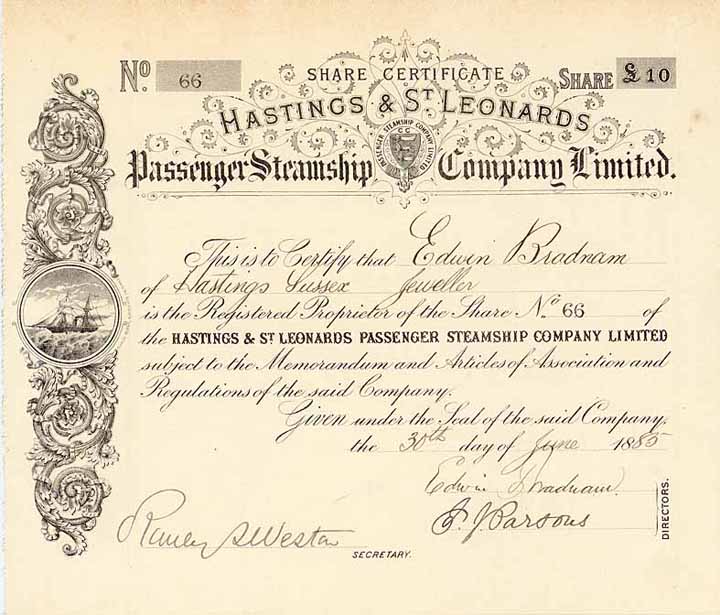 No. 66
SHARE CERTIFICATE
SHARE £ 10
HASTINGS & ST LEONARDS
Passenger Steamship Company Limited.
PASSENGER STEAMSHIP COMPANY LIMITED
This is to Certify that Edwin Bradnam
of Hastings Sussex Jeweller
is the Registered Proprietor of the Share No 66 of
the HASTINGS & ST LEONARDS PASSENGER STEAMSHIP COMPANY LIMITED
subject to the Memorandum and Articles of Association and
Regulations of the said Company.
Given under the Seal of the said Company,
the 30th day of June 1885
Edwin Bradnam.
J. Parsons
DIRECTORS.
Weston
SECRETARY.